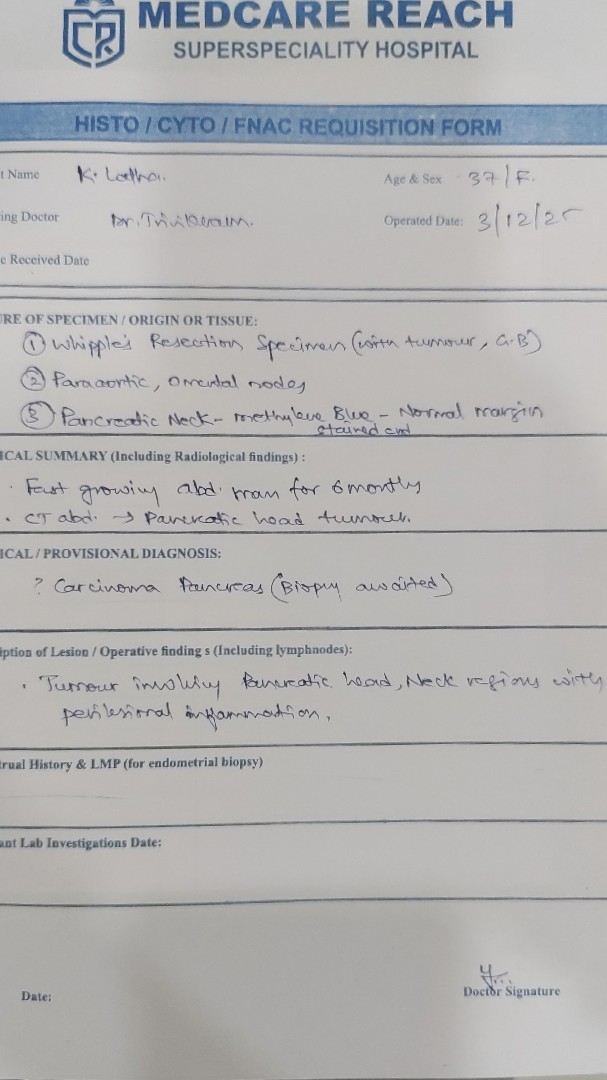 MEDCARE REACH
SUPERSPECIALITY HOSPITAL
HISTO / CYTO / FNAC REQUISITION FORM
t Name K. Latha. Age & Sex 37/F.
ing Doctor Dr. Trivikram. Operated Date: 3/12/25
e Received Date
RE OF SPECIMEN / ORIGIN OR TISSUE:
① Whipple's Resection Specimen (with tumour, G.B)
② Paraaortic, omental nodes
③ Pancreatic Neck - methylene Blue - Normal margin
stained end
ICAL SUMMARY (Including Radiological findings) :
· Fast growing abd. mass for 6 months
· CT abd. → Pancreatic head tumour.
ICAL / PROVISIONAL DIAGNOSIS:
? Carcinoma Pancreas (Biopsy awaited)
iption of Lesion / Operative finding s (Including lymphnodes):
· Tumour involving Pancreatic head, Neck regions with
perilesional inflammation.
trual History & LMP (for endometrial biopsy)
ant Lab Investigations Date:
Date:
Doctor Signature